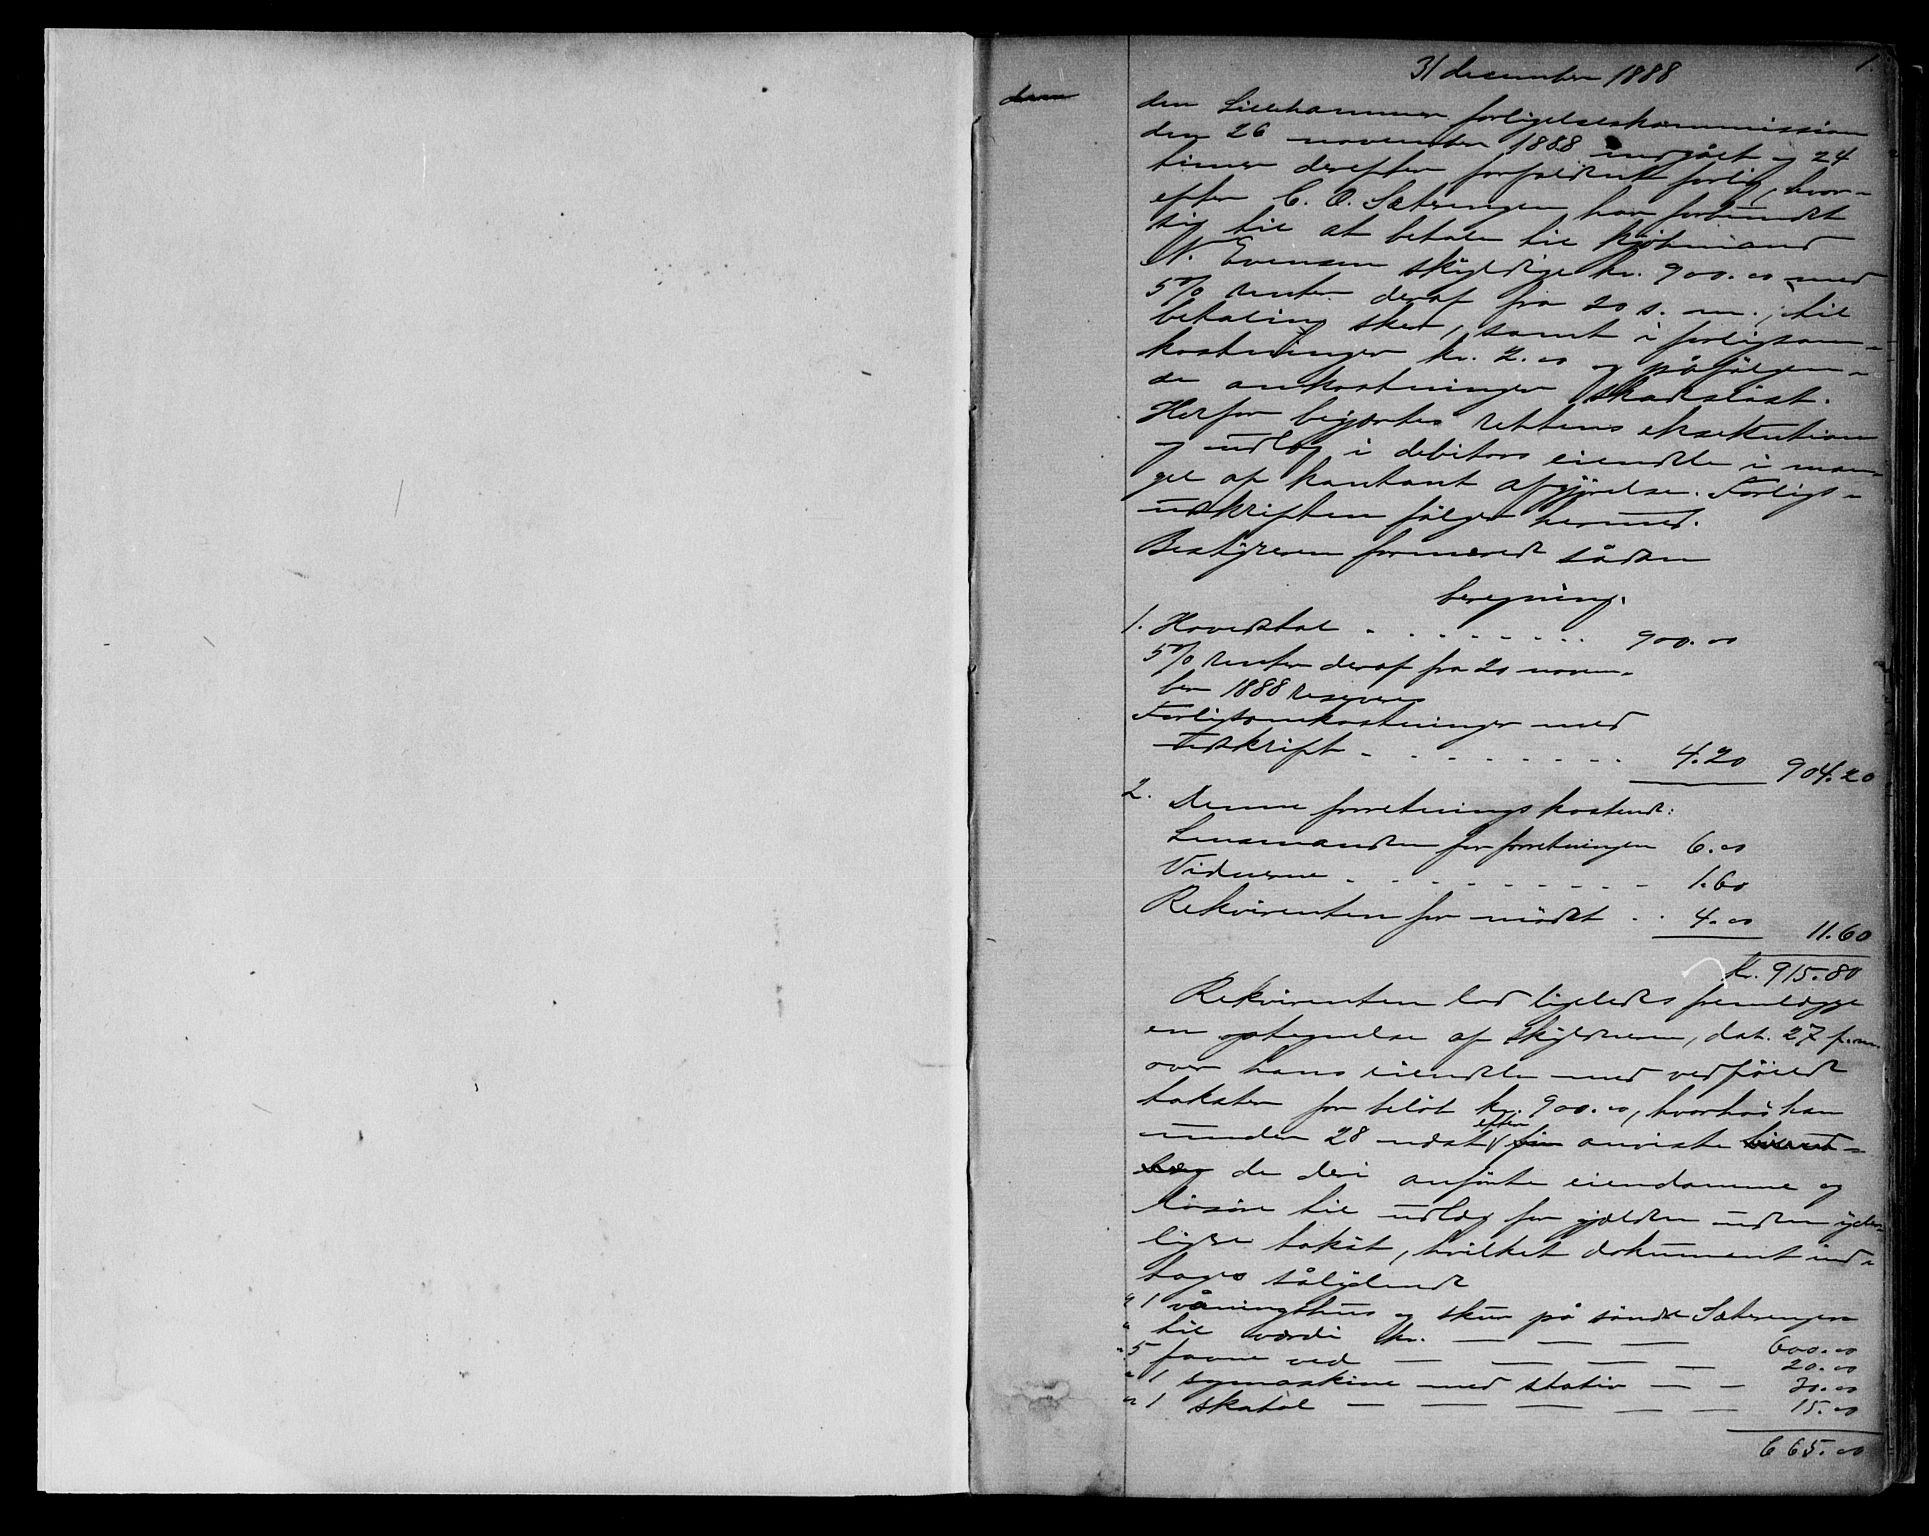 31 december 1888
1.
den
den Lillehammer forligelseskommission
den 26 november 1888 indgået og 24
timer derefter forfaldent forlig, hvor-
efter C. O. Sæterengen har forbundet
sig til at betale til kjøbmand
N. Evensen skyldige kr. 900.00 med
5 % renter deraf fra 20 s. m., til
betaling sker, samt i forligsom-
kostninger kr. 2.00 og påfølgen-
de omkostninger skadesløst.
Herfor begjærtes rettens eksekution
og udlæg i debitors eiendele i man-
gel af kontant afgjørelse. Forligs-
udskriften følger hermed.
Bestyreren formerede sådan
beregning.
1. Hovedstol - - - - - - - 900.00
5 % renter deraf fra 20 novem-
ber 1888 reserveres
Forligsomkostninger med
udskrift - - - - - - - - 4.20 904.20
2. Denne forretnings kostende:
Lensmanden for forretningen 6.00
Vidnerne - - - - - - - - - 1.60
Rekvirenten for mødet - - 4.00 11.60
Kr. 915.80
Rekvirenten lod ligeledes fremlægge
en optegnelse af skyldneren, dat. 27 f.m.
over hans eiendele med vedføiede
takster for beløb kr. 900.00, hvorhos han
under 28 næst efter anviste
de deri anførte eiendomme og
løsøre til udlæg for gjælden uden yder-
ligere takst, hvilket dokument ind-
tages sålydende
" 1 våningshus og skur på søndre Sæterengen
" til værdi kr. — — — 600.00
" 5 favne ved — — — — 20.00
" 1 symaskine med stativ — — 30.00
" 1 skatol — — — — — 15.00
665.00